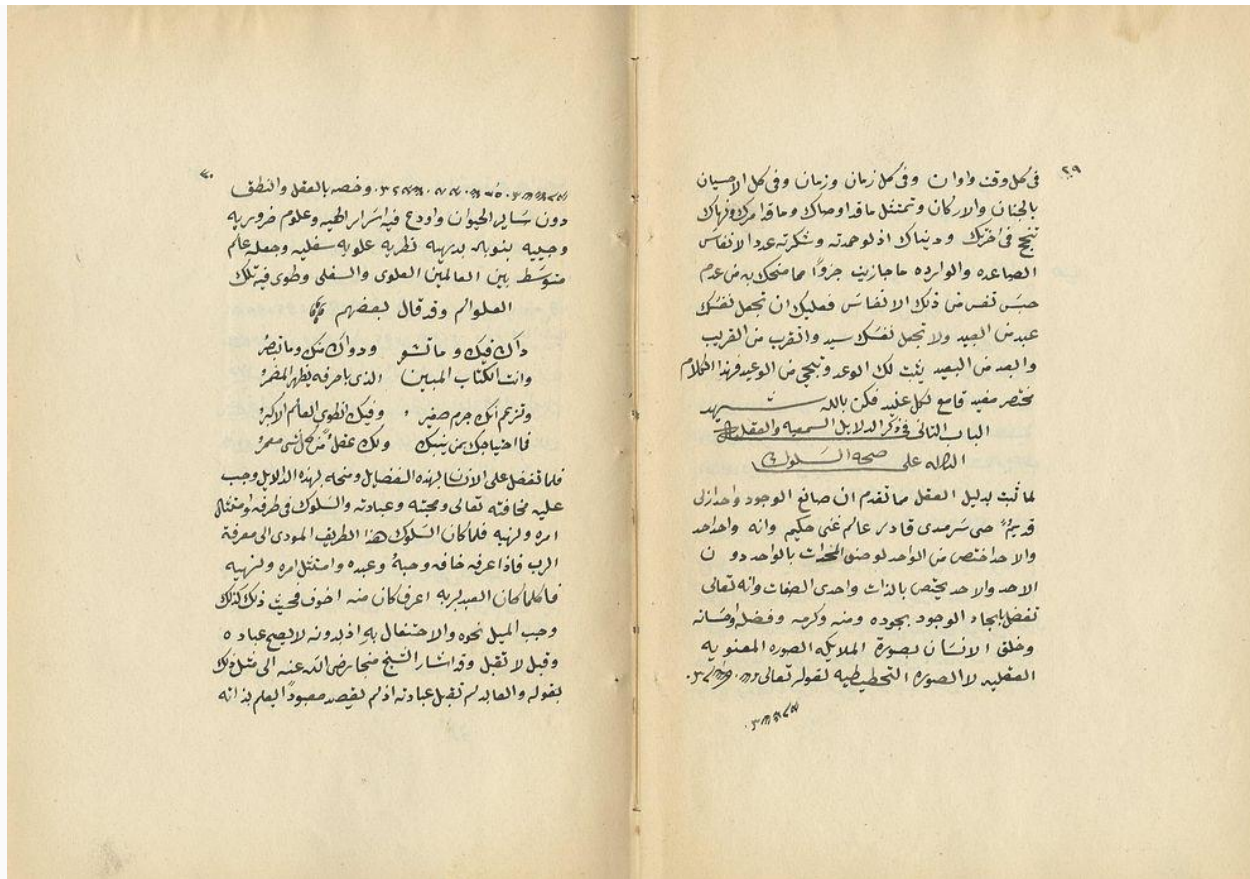 ٢٩
في كل وقت واوان وفي كل زمان وزمان وفي كل الاحيان
بالجنان والاركان وتمتثل ما قد اوصاك وما قد امرك ونهاك
تنجح في اخرتك ودنياك اذ لو حمدته وشكرته عدد الانفاس
الصاعده والوارده ما جازيت جزوًا مما منحك به من عدم
حبس نفس من ذلك الانفاس فعليك ان تجعل نفسك
عبد من العبيد ولا تجعل نفسك سيد واتقرب من القريب
والبعد من البعيد يثبت لك الوعد وتنجي من الوعيد فهذا الكلام
مختصر مفيد قامع لكل عنيد فكن بالله شهيد
الباب الثاني في ذكر الدلايل السمعيه والعقليه
الداله على صحة السلوك
لما ثبت بدليل العقل مما تقدم ان صانع الوجود واحد ازلي
قديمٌ حي سرمدي قادر عالم غني حكيم وانه واحد احد
والاحد اختص من الواحد لوصف المحدث بالواحد دون
الاحد والاحد يختص بالذات واحدي الصفات وانه تعالى
تفضل بايجاد الوجود بجوده ومنه وكرمه وفضله واحسانه
وخلق الانسان بصورة الملايكه الصوره المعنويه
العقليه لا الصوره التخطيطيه لقوله تعالى
٣٠
وخصه بالعقل والنطق
دون ساير الحيوان واودع فيه اسرار الهيه وعلوم ضروريه
بديهيه نظريه علويه سفليه وجعله عالم
متوسط بين العالمين العلوي والسفلي وطوى فيه تلك
العلوالم وقد قال بعضهم
داك فيك وما تشعر ودواك منك وما تبصر
وانت الكتاب المبين الذي باحرفه يظهر المضمر
وتزعم انك جرم صغير وفيك انطوى العالم الاكبر
فما احتياجك بمن ينبيك ولك عقلٌ
فلما تفضل على الانسان بهذه الفضايل ومنحه بهذه الدلايل وجب
عليه مخافته تعالى ومحبته وعبادته والسلوك في طرقه وامتثال
امره ونهيه فلما كان السلوك هذا الطريق المودي الى معرفة
الرب فاذا عرفه خافه وحبهُ وعبده وامتثل امره ونهيه
فاكلما كان العبد لربه اعرف كان منه اخوف فحيث ذلك كذلك
وجب الميل نحوه والاحتفال به اذ بدونه لا يصح عباده
وقبل لا تقبل وقد اشار الشيخ رضي الله عنه الى مثل ذلك
بقوله والعابد لم تقبل عبادته اذ لم يقصد معبودًا يعلم بذاته